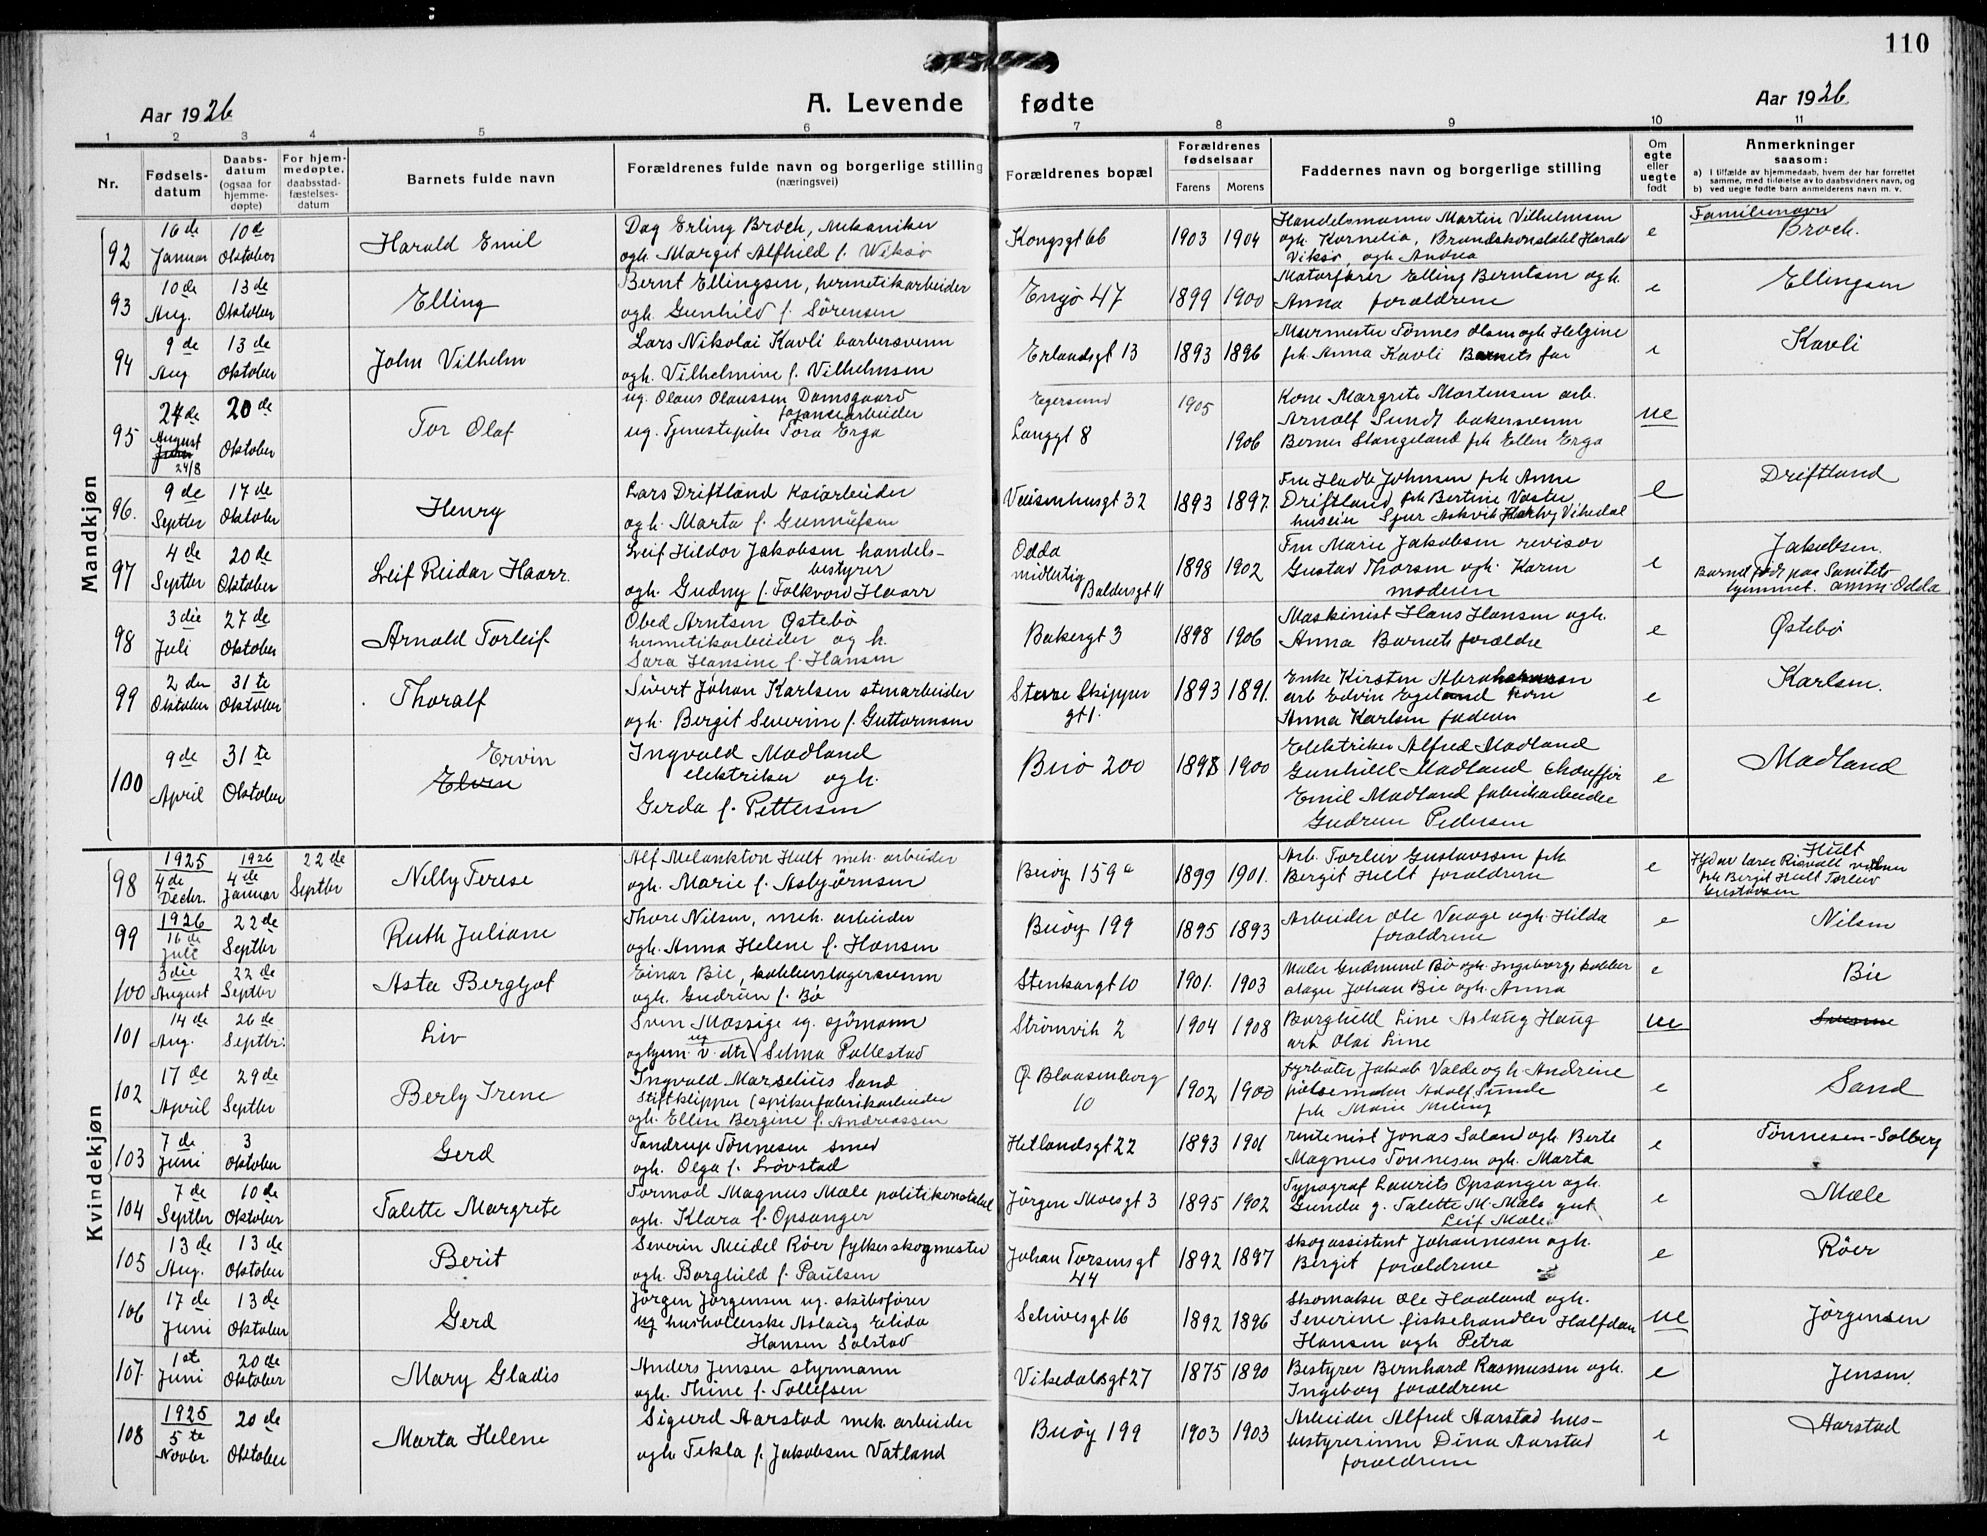 110
Aar 1926
A. Levende fødte
Aar 1926
1 2 3 4 5 6 7 8 9 10 11
Nr.
Fødselsdatum
Daabsdatum (ogsaa for hjemmedøpte)
For hjemmedøpte. daabsstadfæstelsesdatum
Barnets fulde navn
Forældrenes fulde navn og borgerlige stilling (næringsvei)
Forældrenes bopæl
Forældrenes fødselsaar
Farens Morens
Faddernes navn og borgerlige stilling
Om egte eller uegte født
Anmerkninger saasom:
a) I tilfælde av hjemmedaab, hvem der har forrettet samme, med tilføielse av to daabsvidners navn, og
b) ved uegte fødte barn anmelderens navn m. v.
Mandkjøn
92 16de Januar 10de Oktober Harald Emil
Dag Erling Broch, Mekaniker
ogh. Margit Alfhild f. Viksø
Kongsgt 66 1903 1904
Handelsmann Martin Vilhelmsen
ogh. Kornelia, Brandskonstabel Harald
Viksø, ogh Andrea
e Familienavn
Broch.
93 10de Aug. 13de Oktober Elling
Bernt Ellingsen, hermetikarbeider
ogh. Gunhild f. Sörensen
Engø 47 1899 1900
Motorfører Elling Berntsen ogh.
Anna forældrene
e Ellingsen
94 9de Aug 13de Oktober John Vilhelm
Lars Nikolai Kavli barbersvenn
ogh. Vilhelmine f. Vilhelmsen
Erlandsgt 13 1893 1896
Murmester Tönnes Olsen ogh Helgine
frk Anna Kavli Barnets far
e Kavli
95 24de August 24/8 20de Oktober Tor Olaf
ug. Olaus Olaussen Damsgaard
fajancearbeider
ug. Tjenestepike Tora Erga
Egersund 1905
Langgt 8 1906
Kone Margrete Mortensen arb.
Arnolf Sundt bakersvenn
Berner Stangeland frk Ellen Erga
ue
96. 9de Septbr 17de Oktober Henry
Lars Driftland Kaiarbeider
ogh. Marta f. Gunnufsen
Vaisenhusgt 32 1893 1897.
Driftland frk Bertine Vaster
e Driftland
97 4de Septbr 20de Oktober Leif Reidar Haarr.
Leif Hildor Jakobsen handelsbestyrer
ogh. Gudny f. Folkvord Haarr
Odda
midlertig
Baldersgt 11 1898 1902
Fru Marie Jakobsen revisor
Gustav Thorsen ogh. Karen
moderen
e Jakobsen.
Barnet født paa Sanitetshjemmet. Odda
98 3die Juli 27de Oktober Arnold Torleif
Obed Arntsen Østebö
hermetikarbeider og h.
Sara Hansine f. Hansen
Bakergt 3 1898 1906
Maskinist Hans Hansen ogh.
Anna Barnets forældre
e Østebö
99 2den Oktober 31te Oktober Thoralf
Sivert Johan Karlsen stenarbeider
ogh. Bergit Severine f. Guttormsen
Store Skippergt 1. 1893 1891.
Enke Kirsten Abrahamsen
arb Edvin Egeland Kone
Anna Karlsen faderen
e Karlsen.
100 9de April 31te Oktober Ervin
Elven
Ingvald Madland
elektriker ogh.
Gerda f. Pettersen
Buö 200 1898 1900
Elektriker Alfred Madland
Gunhild Madland Chauffør
Emil Madland fabrikarbeider
Gudrun Pedersen
e Madland
Kvindekjøn
98 1925 4de Decbr. 1926 4de Januar 22de Septbr Nelly Terese
Alf Melankton Hult mek. arbeider
ogh. Marie f. Asbjørnsen
Buöy 159a 1899 1901.
Arb. Torleiv Gustavssen frk
Bergit Hult forældrene
e Hult
frk Bergit Hult Torleiv
Gustavsen
99 1926 16de Juli 22de Septbr Ruth Juliane
Thore Nilsen, mek. arbeider
ogh. Anna Helene f. Hansen
Buöy 199 1895 1893
Arbeider Ole Veage ogh. Hilda
forældrene
e Nilsen
100 3die August 22de Septbr Asta Bergljot
Einar Bie, kobberslagersvenn
ogh. Gudrun f. Bø
Stenkargt 10 1901. 1903
Maler Gudmund Bø ogh. Ingeborg, kobberslager Johan Bie ogh. Anna
e Bie
101 14de Aug. 26de Septbr: Liv
Sven Massige ug. sjömann
ug hjem. v. dtr Selma Pollestad
Strömvik 2 1904 1908
Borghild Line Aslaug Haug
arb Olai Line
ue
102 17de April 29de Septbr Berly Irene
Ingvald Marselius Sand
Stiftklipper (spikerfabrikarbeider
ogh. Ellen Bergine f. Andreassen
Ø. Blaasenborg
10 1902 1900
Fyrbøter Jakob Valde ogh Andrine
pølsemaker Adolf Sunde
frk Marie Meling
e Sand
103 7de Juni 3 Oktober Gerd
Tandrup Tönnesen smed
ogh. Olga f. Lövstad
Hetlandsgt 22 1893 1901
rentenist Jonas Saland ogh Berte
Magnus Tönnesen ogh. Marta
e Tönnesen-Solberg
104 7de Septbr 10de Oktober Talette Margrete
Tormod Magnus Mæle politikonstabel
ogh. Klara f. Opsanger
Jörgen Moesgt 3 1895 1902
Typograf Laurits Opsanger ogh.
Gunda g. Talette M. Mæle gut
Leif Mæle
e Mæle
105 13de Aug. 13de Oktober Berit
Severin Meidel Röer fylkesskogmester
ogh. Borghild f. Paulsen
Johan Torsensgt
44 1892 1897
Skogassistent Johannesen ogh.
Bergit forældrene
e Röer
106 17de Juni 13de Oktober Gerd
Jörgen Jörgensen ug. skibsfører
ug husholderske Aslaug Elida
Hansen Solstad
Schivesgt 16 1892 1896
Skomaker Ole Haaland ogh.
Severine fiskehandler Halfdan
Hansen ogh Petra
ue Jörgensen
107. 1st Juni 20de Oktober Mary Gladis
Anders Jensen styrmann
ogh. Thine f. Tollefsen
Vikedalsgt 27 1875 1890
Bestyrer Bernhard Rasmussen ogh.
Ingeborg forældrene
e Jensen.
108 1925 5te Novbr 20de Oktober Marta Helene
Sigurd Aarstad mek. arbeider
ogh. Tekla f. Jakobsen Vatland
Buöy 199 1903 1903
Arbeider Alfred Aarstad husbestyrerinne Dina Aarstad
forældrene
e Aarstad